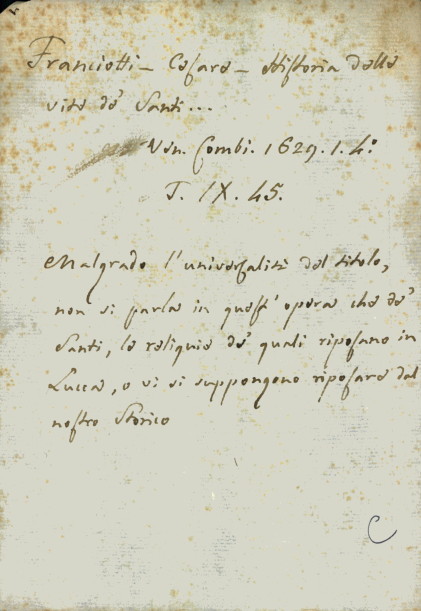 Franciotti - Cesare - Historia delle
vite de' Santi...
Ven. Combi. 1629. 1. 4:
T. IX. 45.
Malgrado l'universalità del titolo,
non si parla in quest'opera che de'
Santi, le reliquie de' quali riposano in
Lucca, o vi si suppongono riposare dal
nostro Storico
C